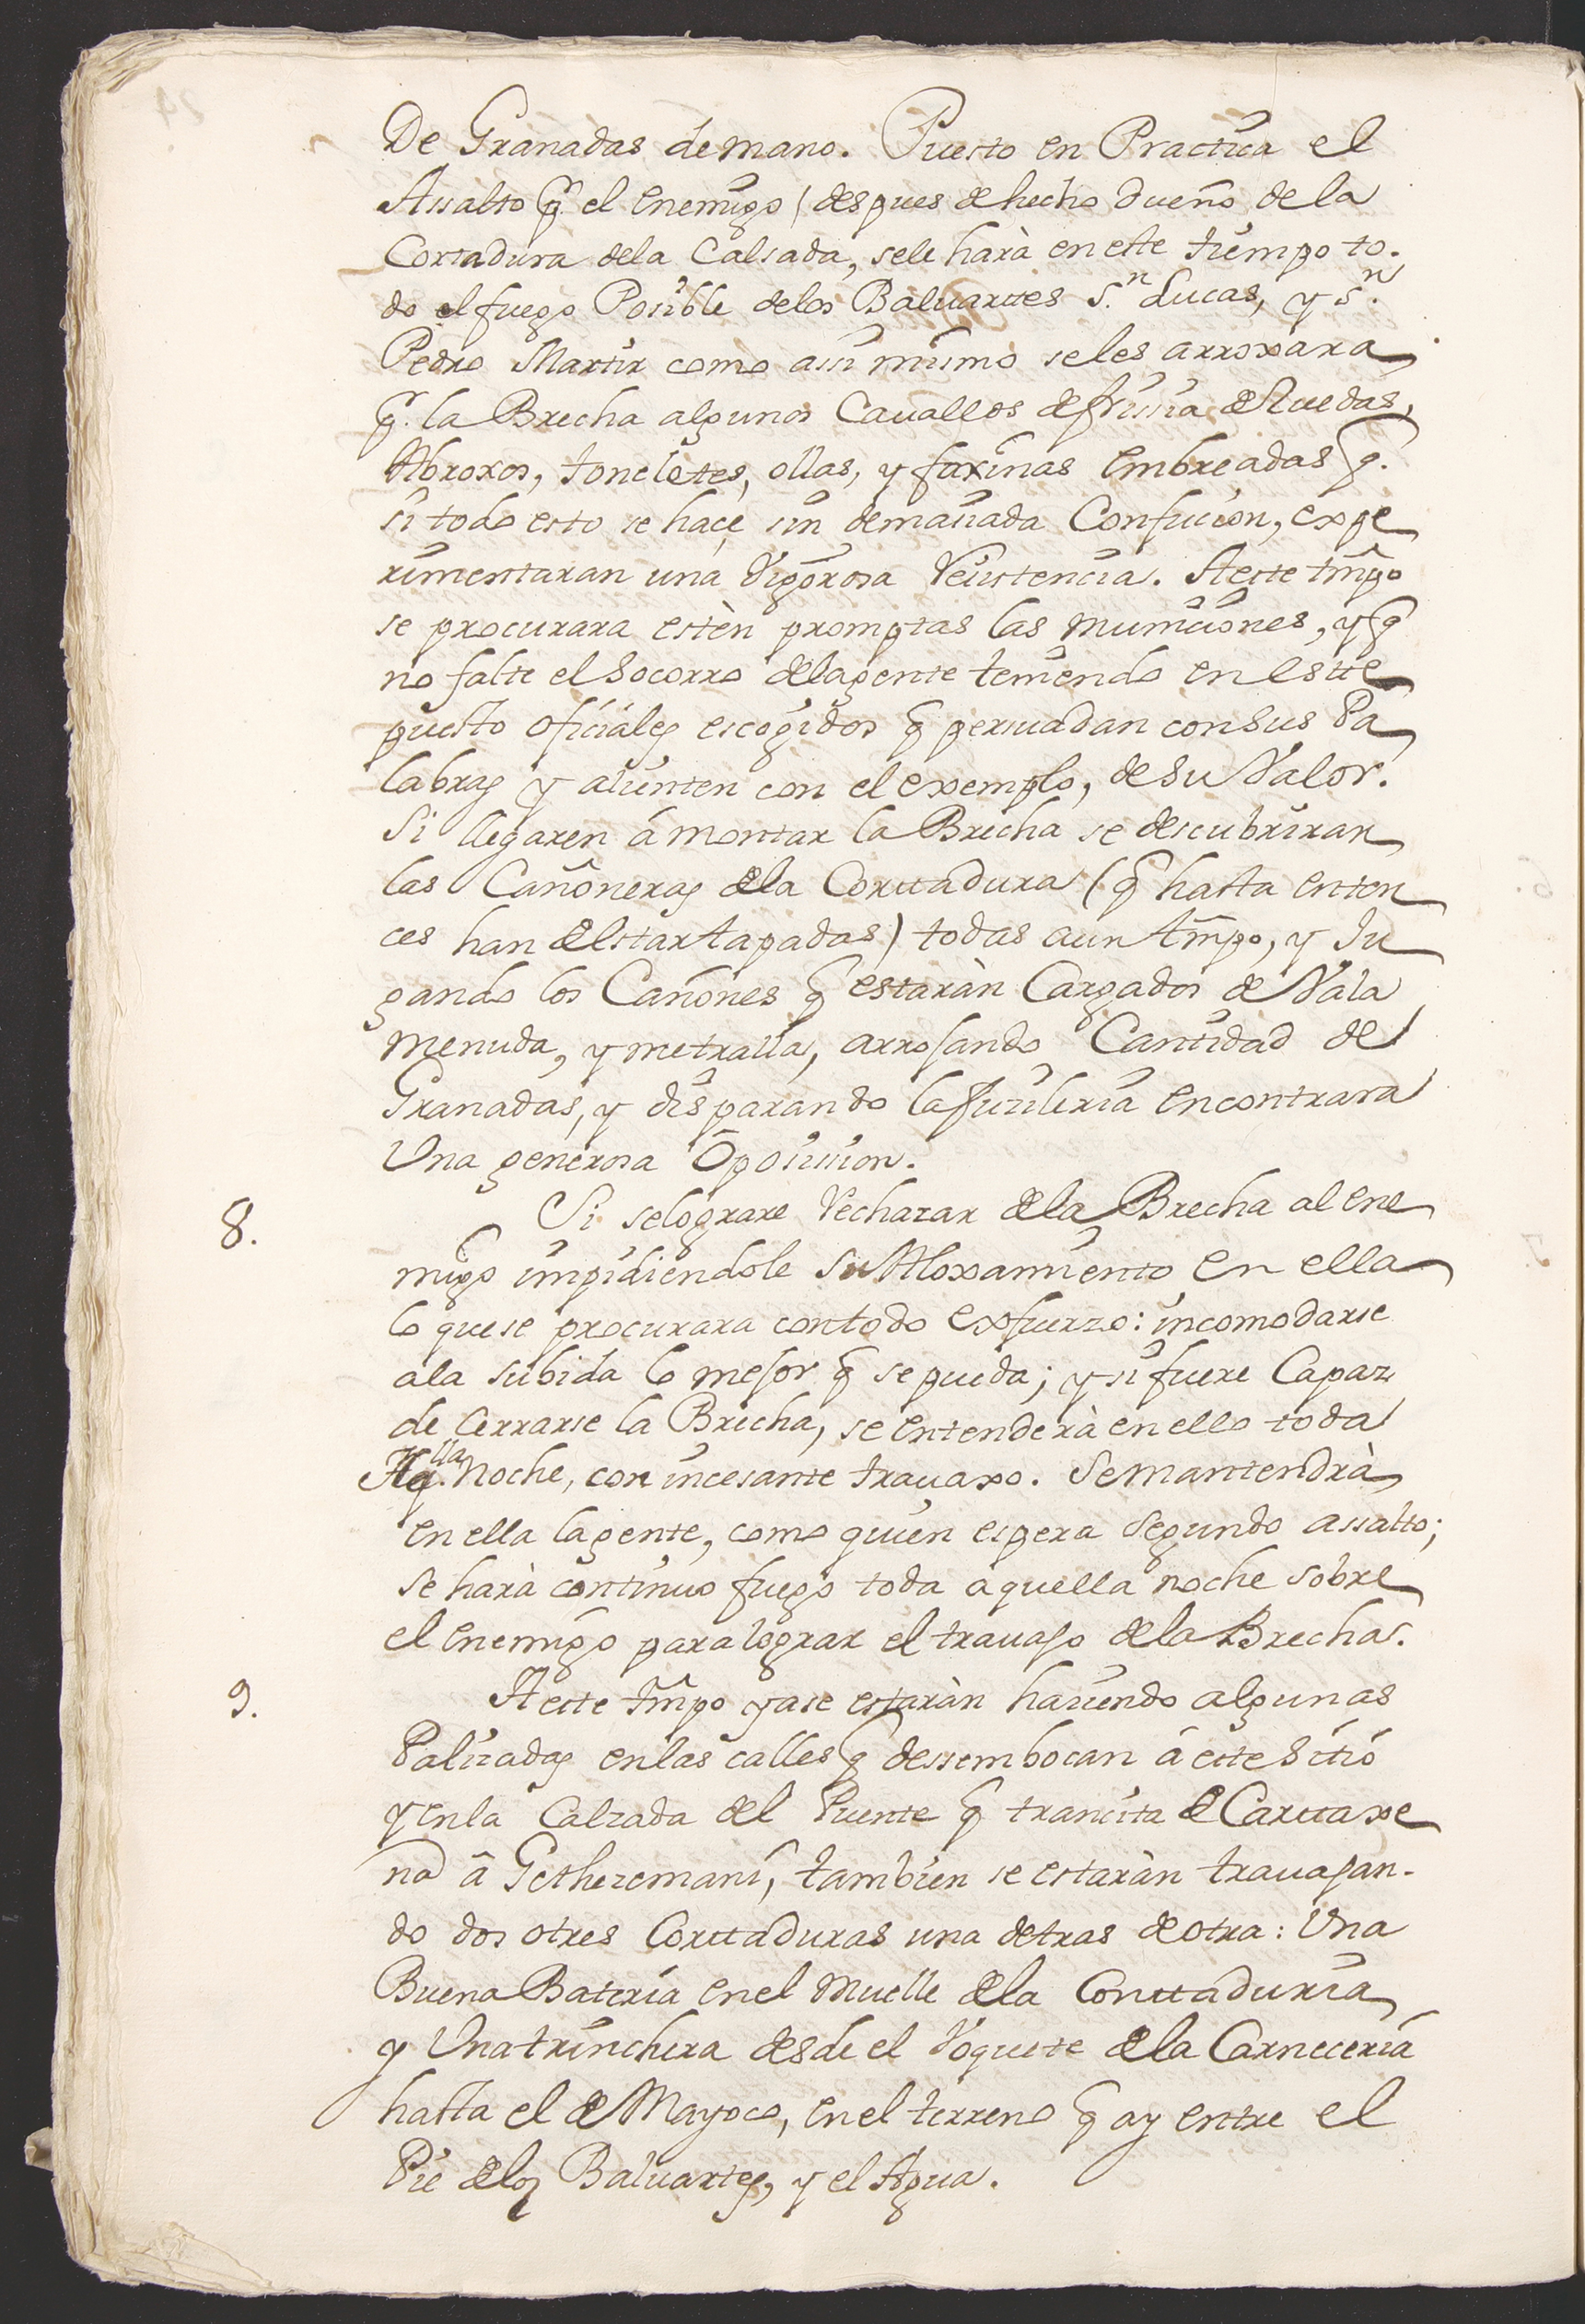 De Granadas de mano. Puesto en Practica el
Assalto q. el enemigo (despues de hecho dueño de la
Cortadura dela Calsada, sele harà en este tiempo to-
do el fuego Posible delos Baluartes S.n Lucas, y S.n
Pedro Martir como assi mismo seles arroxara
q. la Brecha algunos Cavallos de frissia de Ruedas,
Abroxos, toneletes, ollas, y faxinas embreadas q.
si todo esto se hace sin demasiada Confucion, expe
rimentaran una Vigorosa Resistencia. A este tmpo
se procurara estèn promptas las municiones, y q
no falte el Socorro dela gente teniendo en este
puesto oficiales escogidos q persuadan con sus Pa
labras y alienten con el exemplo, de su Valor.
Si llegaren á montar la Brecha se descubriran
las Cañoneras dela Corttadura (q hasta enton
ces han de estar tapadas) todas a un tmpo, y Ju
gando los Cañones q estaràn Cargados de Vala
menuda, y metralla, arrojando Cantidad de
Granadas, y disparando la fuzileria encontrara
Una generosa Oposission.
8. Si selograre Rechazar dela Brecha al ene
migo impidiendole su Aloxamiento en ella
lo que se procurara con todo exfuerzo: incomodarse
a la subida lo mejor q se pueda; y si fuere Capaz
de Cerrarse la Brecha, se entenderà en ello toda
Aq.lla Noche, con incesante travaxo. Se mantendrà
en ella la gente, como quien espera segundo assalto;
se harà continuo fuego toda aquella noche sobre
el enemigo para lograr el travajo dela Brecha.
9. A este tmpo ya se estaràn haciendo algunas
Palizadas en las calles q dessembocan á este Sitio
y en la Calzada del Puente q trancita de Carttaxe
na â Gethezemani, tambien se estaràn travajan-
do dos o tres Corttaduras una detras de otra: Una
Buena Bateria en el Muelle dela Conttaduria
y Una trinchera desde el Voquete dela Carneceria
hasta el de Mayoco, en el terreno q ay entre el
Pie delos Baluartes, y el Agua.